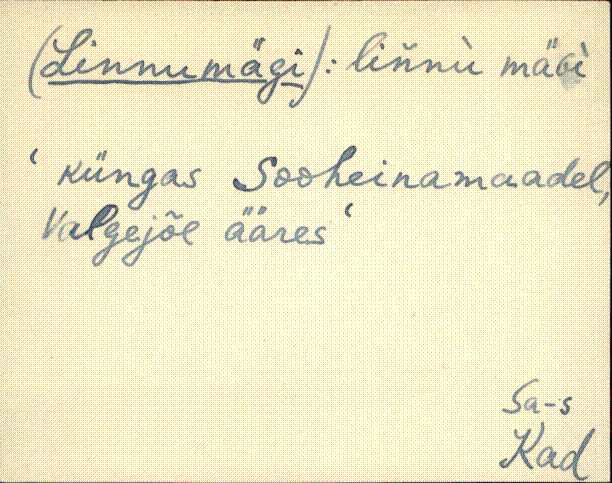 (Linnumägi): liňnù mäGì
‘ küngas Sooheinamaadel,
Valgejõe ääres ‘
Sa-s
Kad